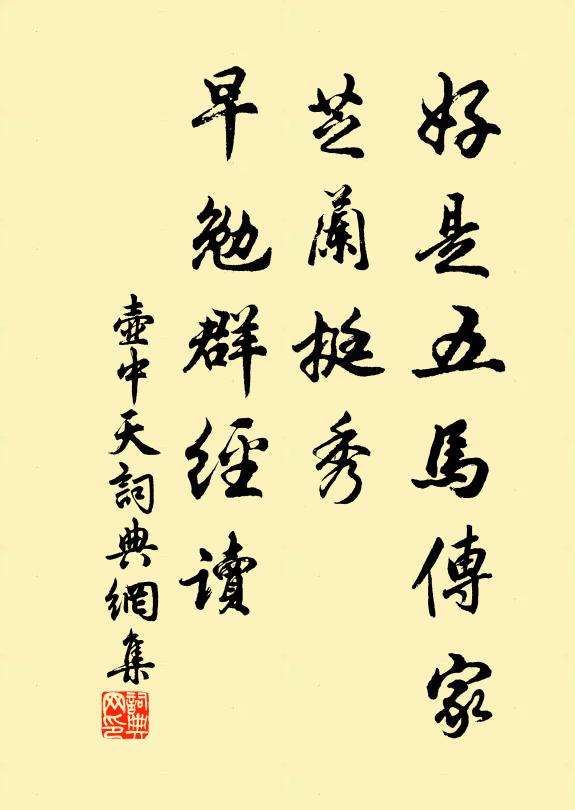 好是五馬傳家
芝蘭挺秀
早勉群經讀
壺中天詞典網集
詞典网印